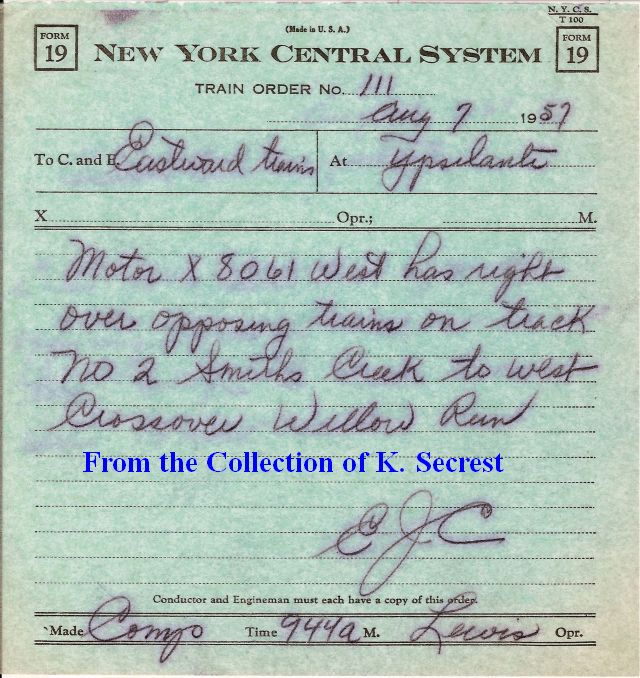 N. Y. C. S.
T 100
(Made in U. S. A.)
FORM
19
NEW YORK CENTRAL SYSTEM
FORM
19
TRAIN ORDER No. 111
Aug 7 1957
To C. and E Eastward trains At Ypsilanti
X Opr.; M.
Motor X 8061 West has right
over opposing trains on track
No 2 Smiths Creek to west
Crossover Willow Run
From the Collection of K. Secrest
E J C
Conductor and Engineman must each have a copy of this order.
Made Comp Time 944a M. Lewis Opr.